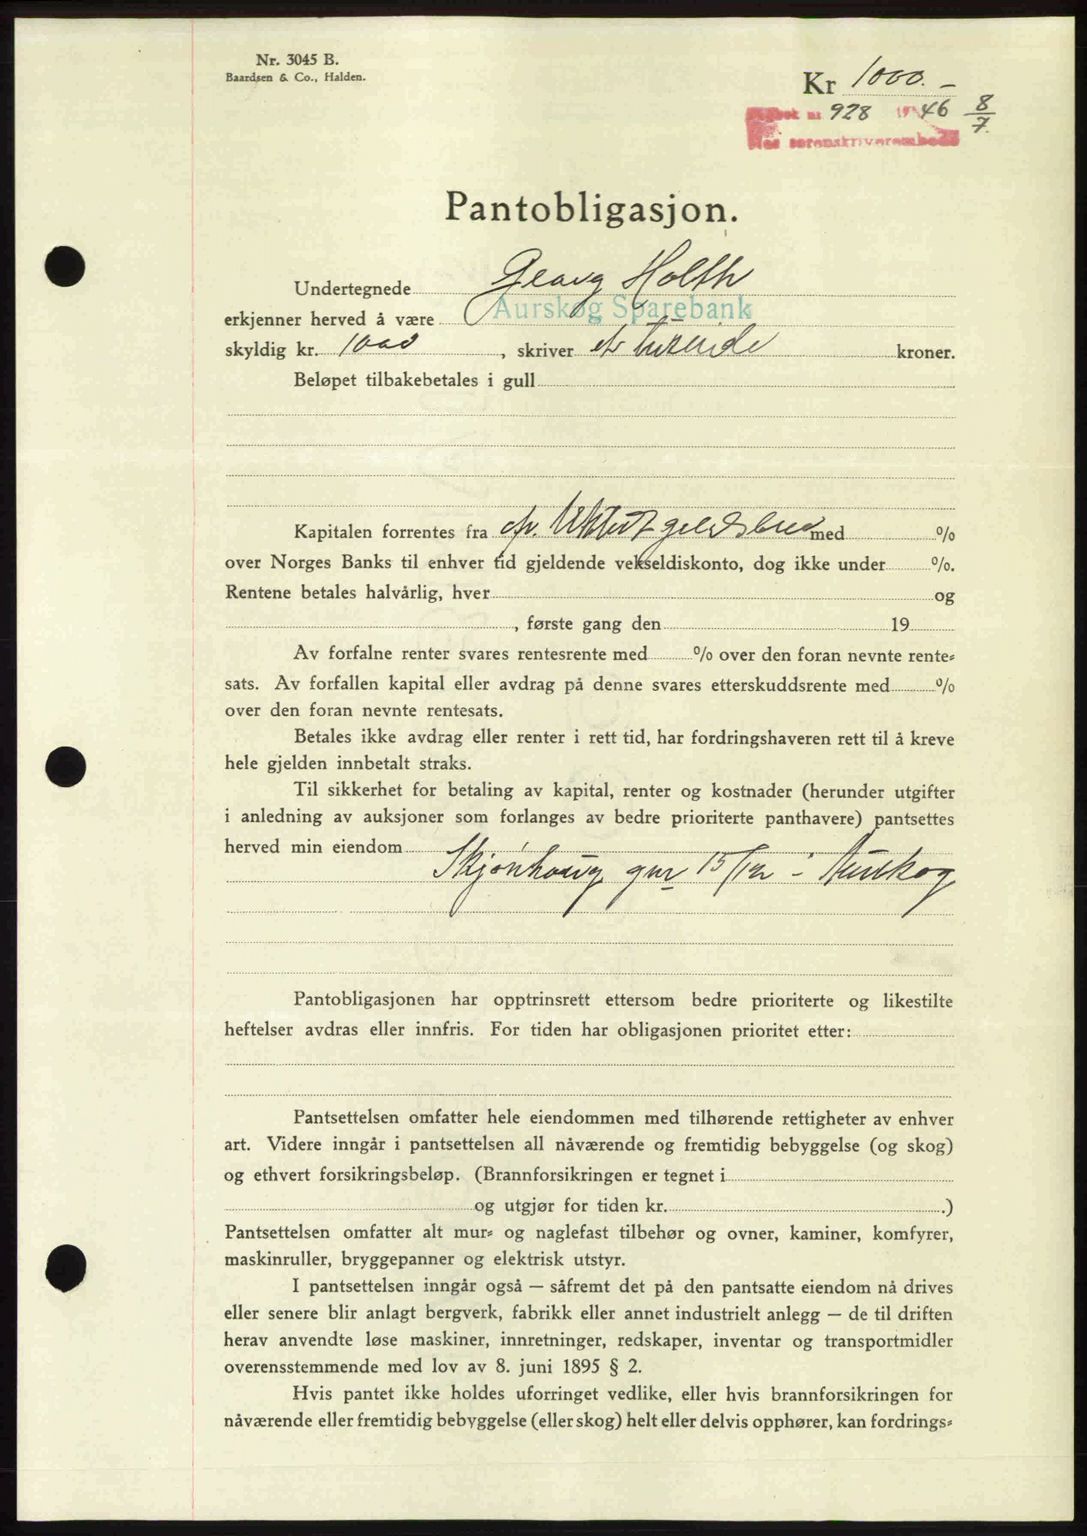 Nr. 3045 B.
Baardsen & Co., Halden.
Kr 1000.-
Dagbok nr 928 1946 8/7.
Nes sorenskriverembede
Pantobligasjon.
Undertegnede Georg Holth
erkjenner herved å være Aurskog Sparebank
skyldig kr. 1000, skriver et tusende kroner.
Beløpet tilbakebetales i gull
Kapitalen forrentes fra gjeldsbrev med %
over Norges Banks til enhver tid gjeldende vekseldiskonto, dog ikke under %.
Rentene betales halvårlig, hver og
, første gang den 19
Av forfalne renter svares rentesrente med % over den foran nevnte rente-
sats. Av forfallen kapital eller avdrag på denne svares etterskuddsrente med %
over den foran nevnte rentesats.
Betales ikke avdrag eller renter i rett tid, har fordringshaveren rett til å kreve
hele gjelden innbetalt straks.
Til sikkerhet for betaling av kapital, renter og kostnader (herunder utgifter
i anledning av auksjoner som forlanges av bedre prioriterte panthavere) pantsettes
herved min eiendom
Skjønhaug gnr 15/12 i Aurskog
Pantobligasjonen har opptrinsrett ettersom bedre prioriterte og likestilte
heftelser avdras eller innfris. For tiden har obligasjonen prioritet etter:
Pantsettelsen omfatter hele eiendommen med tilhørende rettigheter av enhver
art. Videre inngår i pantsettelsen all nåværende og fremtidig bebyggelse (og skog)
og ethvert forsikringsbeløp. (Brannforsikringen er tegnet i
og utgjør for tiden kr. .)
Pantsettelsen omfatter alt mur- og naglefast tilbehør og ovner, kaminer, komfyrer,
maskinruller, bryggepanner og elektrisk utstyr.
I pantsettelsen inngår også — såfremt det på den pantsatte eiendom nå drives
eller senere blir anlagt bergverk, fabrikk eller annet industrielt anlegg — de til driften
herav anvendte løse maskiner, innretninger, redskaper, inventar og transportmidler
overensstemmende med lov av 8. juni 1895 § 2.
Hvis pantet ikke holdes uforringet vedlike, eller hvis brannforsikringen for
nåværende eller fremtidig bebyggelse (eller skog) helt eller delvis opphører, kan fordrings-